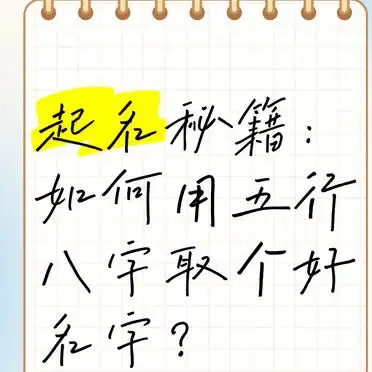 起名秘籍：
如何用五行
八字取个好
名字？